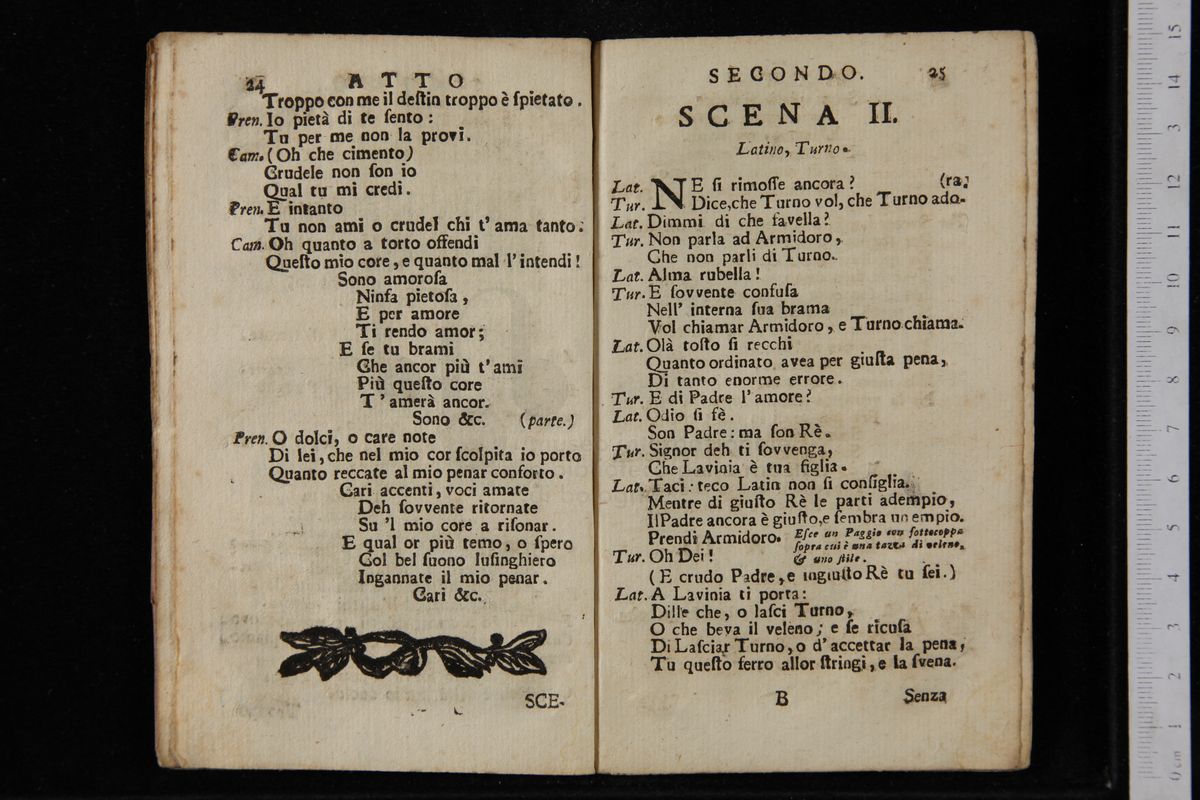 24 ATTO
Troppo con me il deſtin troppo è ſpietato.
Pren. Io pietà di te ſento:
Tu per me non la provi.
Cam. (Oh che cimento)
Crudele non ſon io
Qual tu mi credi.
Pren. E intanto
Tu non ami o crudel chi t' ama tanto.
Cam. Oh quanto a torto offendi
Queſto mio core, e quanto mal l' intendi!
Sono amoroſa
Ninfa pietoſa,
E per amore
Ti rendo amor;
E ſe tu brami
Che ancor più t' ami
Più queſto core
T' amerà ancor.
Sono &c. (parte.)
Pren. O dolci, o care note
Di lei, che nel mio cor ſcolpita io porto
Quanto reccate al mio penar conforto.
Cari accenti, voci amate
Deh ſovvente ritornate
Su 'l mio core a riſonar.
E qual or più temo, o ſpero
Col bel ſuono luſinghiero
Ingannate il mio penar.
Cari &c.
SCE-
SECONDO. 25
SCENA II.
Latino, Turno.
Lat. NE ſi rimoſſe ancora? (ra.
Tur. Dice, che Turno vol, che Turno ado-
Lat. Dimmi di che favella?
Tur. Non parla ad Armidoro,
Che non parli di Turno.
Lat. Alma rubella!
Tur. E ſovvente confuſa
Nell' interna ſua brama
Vol chiamar Armidoro, e Turno chiama.
Lat. Olà toſto ſi recchi
Quanto ordinato avea per giuſta pena,
Di tanto enorme errore.
Tur. E di Padre l' amore?
Lat. Odio ſi fè.
Son Padre: ma ſon Rè.
Tur. Signor deh ti ſovvenga,
Che Lavinia è tua figlia.
Lat. Taci: teco Latin non ſi conſiglia.
Mentre di giuſto Rè le parti adempio,
Il Padre ancora è giuſto, e ſembra un empio.
Prendi Armidoro. Eſce un Paggio con ſottocoppa
ſopra cui è una tazza di veleno,
Tur. Oh Dei! & uno ſtile.
(E crudo Padre, e ingiuſto Rè tu ſei.)
Lat. A Lavinia ti porta:
Dille che, o laſci Turno,
O che beva il veleno; e ſe ricuſa
Di Laſciar Turno, o d' accettar la pena,
Tu queſto ferro allor ſtringi, e la ſvena.
B Senza
0 cm 1 2 3 4 5 6 7 8 9 10 11 12 13 14 15